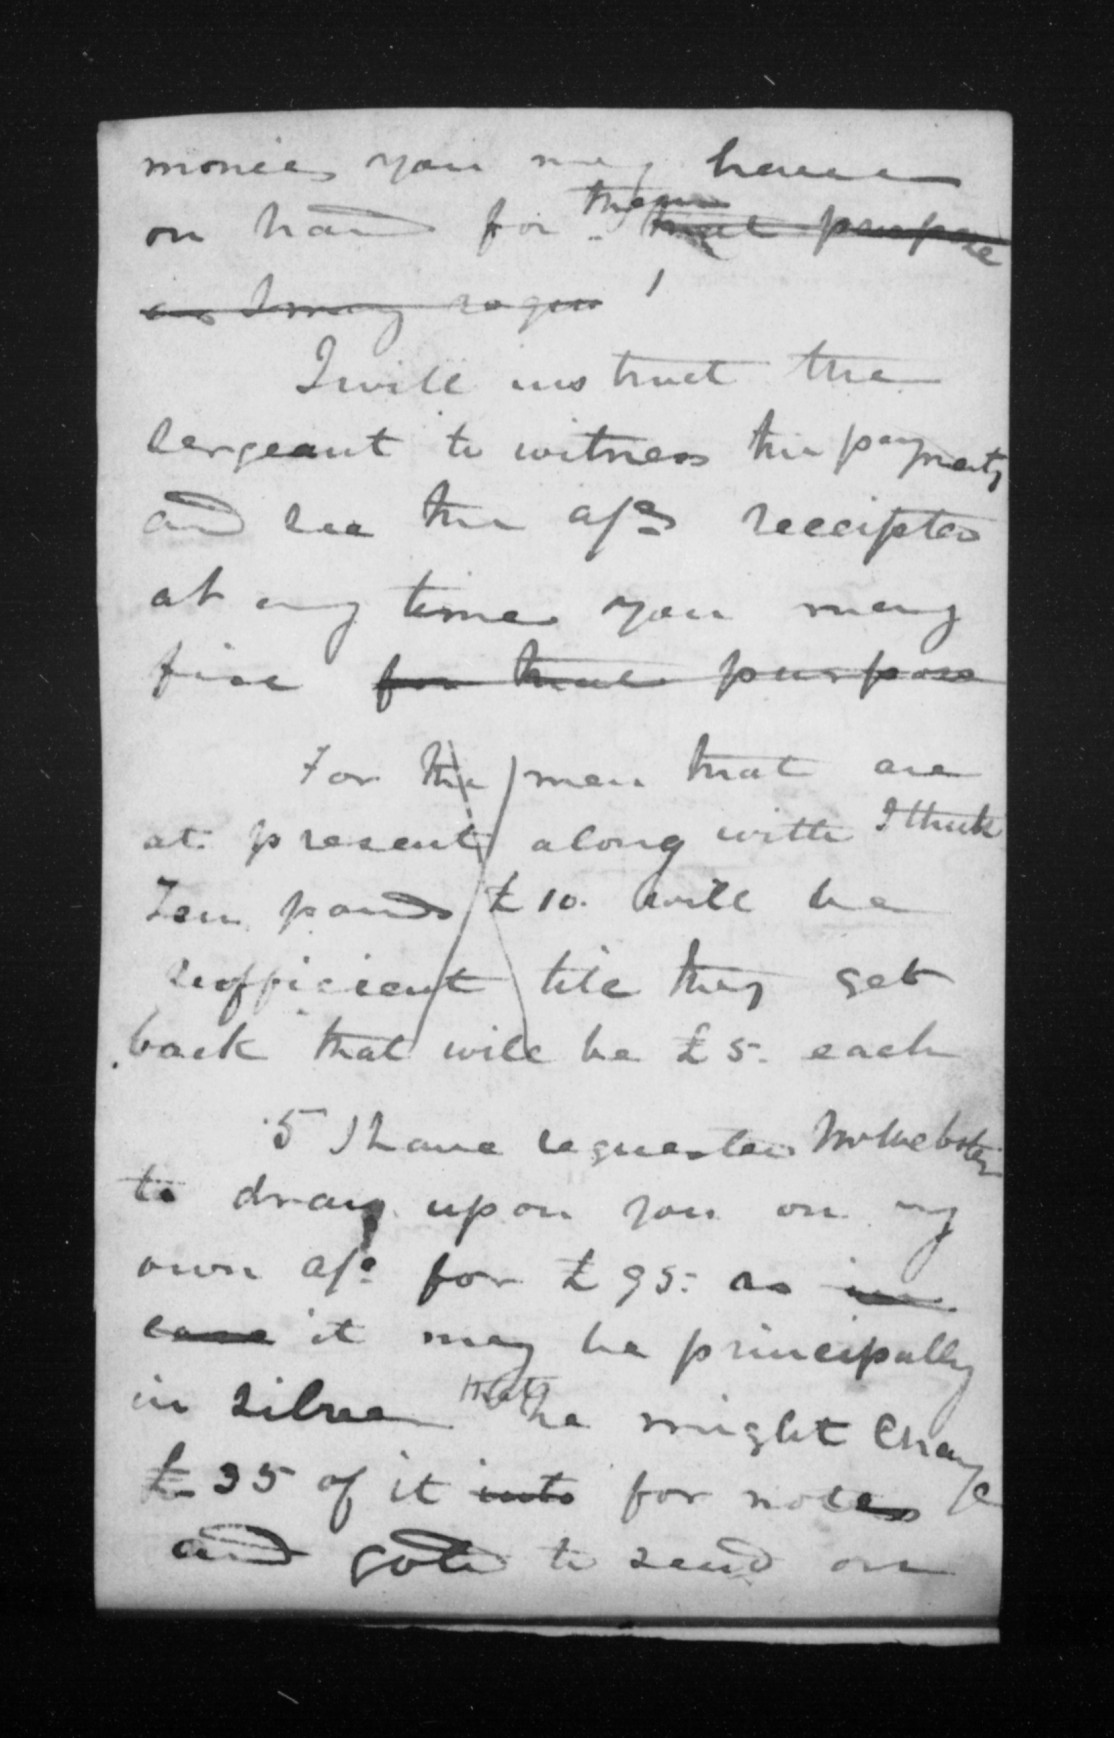 monies you may have
on hand for them that purpose
as I may requi
I will instruct the
sergeant to witness the payments
and see the a/cs receipted
at any time you may
fix for that purpose
For the men that are
at present along with I think
Ten pounds £10. will be
sufficient till they get
back that will be £5. each
5 I have requested Mr Webster
to draw upon you on my
own a/c for £95. as in
case it may be principally
in silver that he might change
£35 of it into for notes
and gold to send on